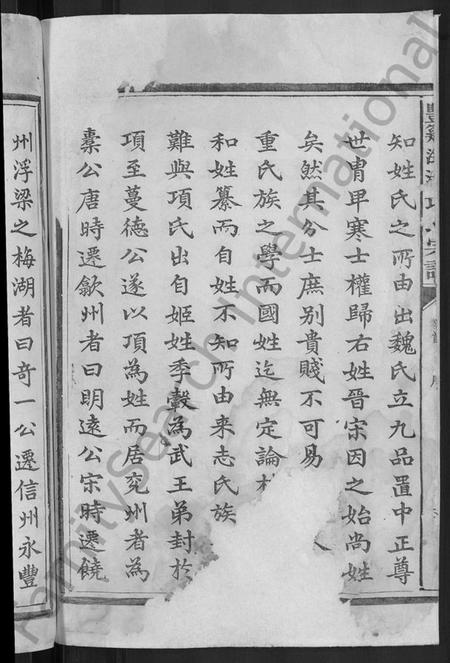 知姓氏之所由出魏氏立九品置中正尊
世胄卑寒士權歸右姓晉宋因之始尚姓
矣然其分士庶別貴賤不可易
重氏族之學而國姓迄無定論
和姓纂而自姓不知所由来志氏族
難與項氏出自姬姓季轂為武王弟封於
項至蔓德公遂以項為姓而居兗州者為
橐公唐時遷歙州者曰明遠公宋時遷饒
州浮梁之梅湖者曰奇一公遷信州永豐
FamilySearch International